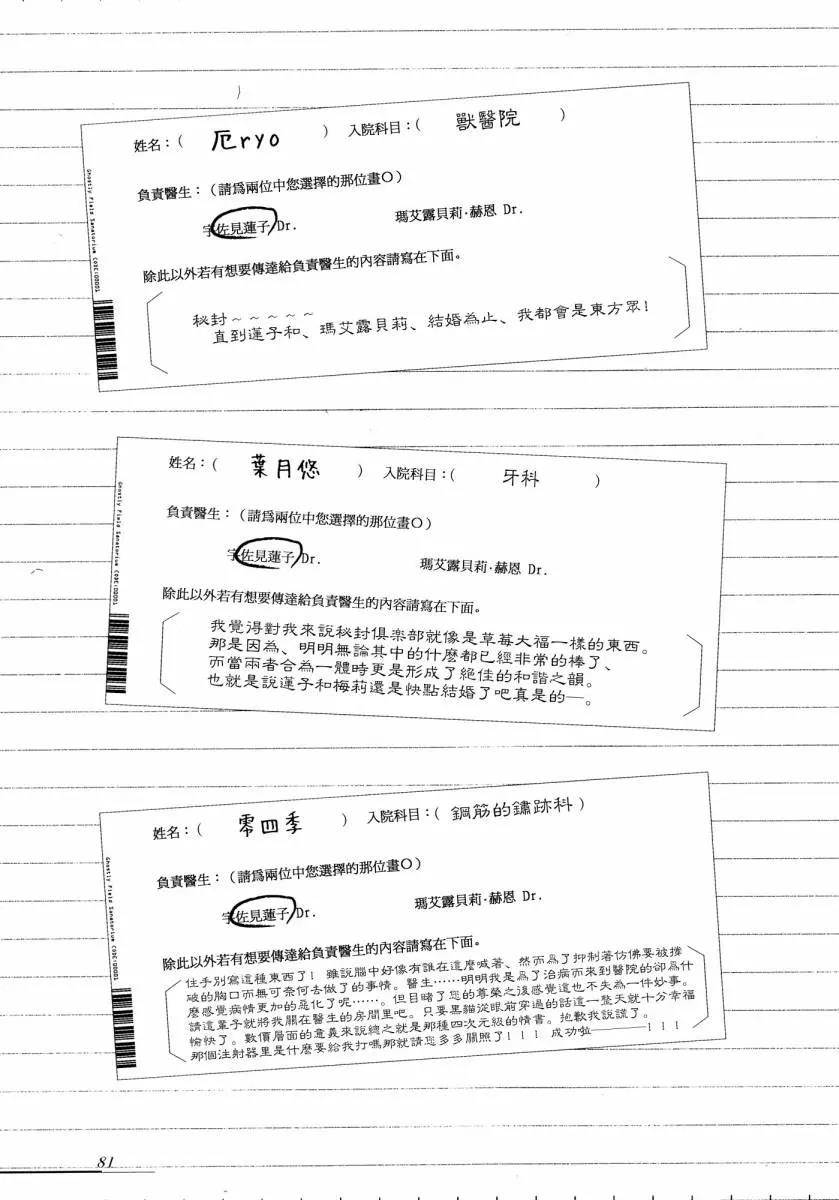 姓名：( 厄ryo ) 入院科目：( 獸醫院 )
負責醫生：（請爲兩位中您選擇的那位畫O）
宇佐見蓮子 Dr. 瑪艾露貝莉·赫恩 Dr.
除此以外若有想要傳達給負責醫生的內容請寫在下面。
秘封～～～～～
直到蓮子和、瑪艾露貝莉、結婚為止、我都會是東方眾！
Ghostly Field Sanatorium CODE:00001
姓名：( 葉月悠 ) 入院科目：( 牙科 )
負責醫生：（請爲兩位中您選擇的那位畫O）
宇佐見蓮子 Dr. 瑪艾露貝莉·赫恩 Dr.
除此以外若有想要傳達給負責醫生的內容請寫在下面。
我覺得對我來說秘封俱楽部就像是草莓大福一樣的東西。
那是因為、明明無論其中的什麼都已經非常的棒了、
而當兩者合為一體時更是形成了絕佳的和諧之韻。
也就是說蓮子和梅莉還是快點結婚了吧真是的—。
Ghostly Field Sanatorium CODE:00001
姓名：( 零四季 ) 入院科目：( 鋼筋的鏽跡科 )
負責醫生：（請爲兩位中您選擇的那位畫O）
宇佐見蓮子 Dr. 瑪艾露貝莉·赫恩 Dr.
除此以外若有想要傳達給負責醫生的內容請寫在下面。
住手別寫這種東西了！雖說腦中好像有誰在這麼喊著、然而為了抑制著仿佛要被撐
破的胸口而無可奈何去做了的事情。醫生……明明我是為了治病而來到醫院的卻為什
麼感覺病情更加的惡化了呢……。但目睹了您的尊榮之後感覺這也不失為一件妙事。
請這輩子就將我關在醫生的房間里吧。只要黑貓從眼前穿過的話這一整天就十分幸福
愉快了。數價層面的意義來說總之就是那種四次元級的情書。抱歉我說謊了。
那個注射器里是什麼要給我打嗎那就請您多多關照了！！！ 成功啦————！！！
Ghostly Field Sanatorium CODE:00001
81